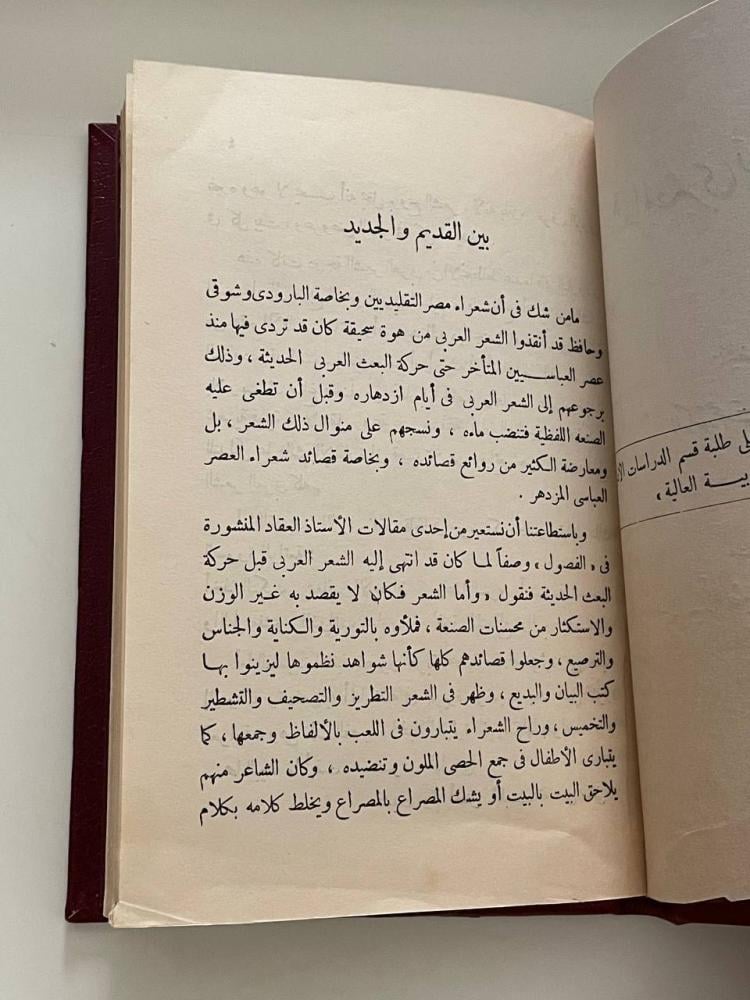 بين القديم والجديد
مامن شك فى أن شعراء مصر التقليديين وبخاصة البارودى وشوقى
وحافظ قد أنقذوا الشعر العربى من هوة سحيقة كان قد تردى فيها منذ
عصر العباسيين المتأخر حتى حركة البعث العربى الحديثة ، وذلك
برجوعهم إلى الشعر العربى فى أيام ازدهاره وقبل أن تطغى عليه
الصنعه اللفظية فتنضب ماءه ، ونسجهم على منوال ذلك الشعر ، بل
ومعارضة الكثير من روائع قصائده ، وبخاصة قصائد شعراء العصر
العباسى المزدهر .
وباستطاعتنا أن نستعير من إحدى مقالات الأستاذ العقاد المنشورة
فى « الفصول » وصفاً لما كان قد انتهى إليه الشعر العربى قبل حركة
البعث الحديثة فنقول « وأما الشعر فكان لا يقصد به غير الوزن
والاستكثار من محسنات الصنعة ، فملأوه بالتورية والكناية والجناس
والترصيع ، وجعلوا قصائدهم كلها كأنها شواهد نظموها ليزينوا بها
كتب البيان والبديع ، وظهر فى الشعر التطريز والتصحيف والتشطير
والتخميس ، وراح الشعراء يتبارون فى اللعب بالألفاظ وجمعها ، كما
يتبارى الأطفال فى جمع الحصى الملون وتنضيده ، وكان الشاعر منهم
يلاحق البيت بالبيت أو يشك المصراع بالمصراع ويخلط كلامه بكلام
طلبة قسم الدراسات
العالية ،